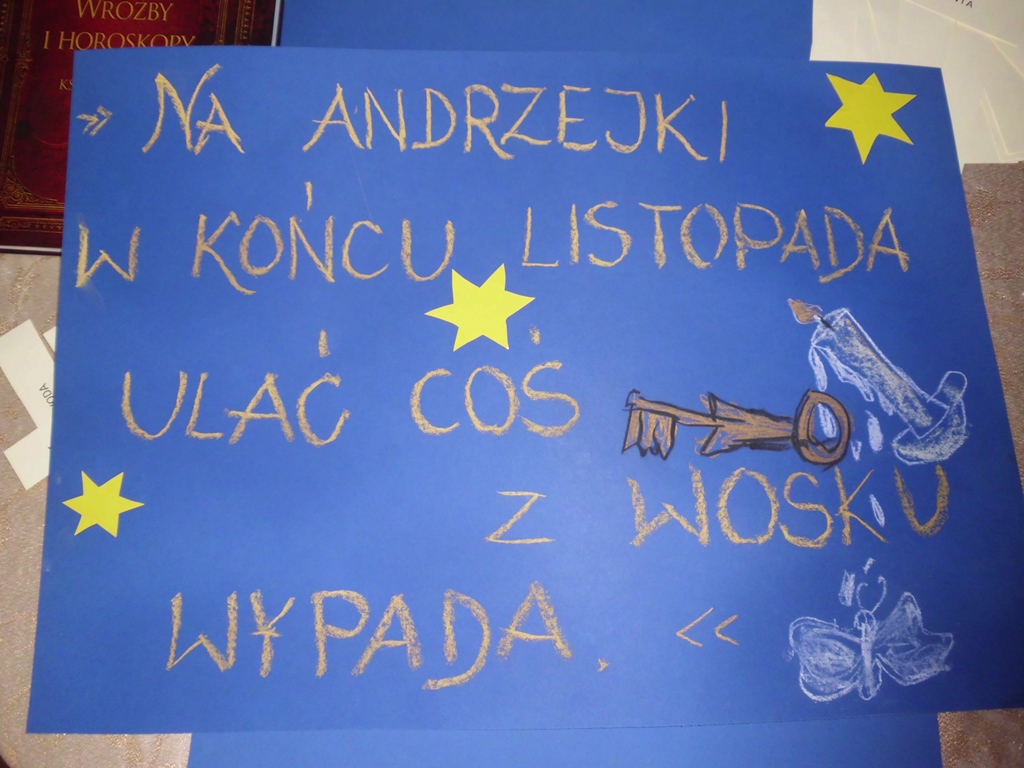 WRÓŻBY
I HOROSKOPY
» NA ANDRZEJKI
W KOŃCU LISTOPADA
ULAĆ COŚ
Z WOSKU
WYPADA. <<